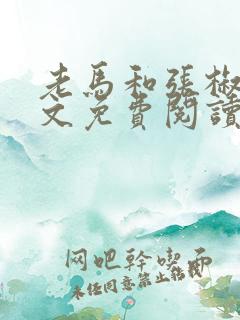 老馬和張椒
文免費閱讀
网吧幹喫面
未经同意禁止转载